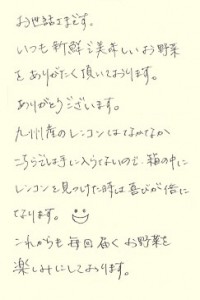 お世話さまです。
いつも新鮮で美味しいお野菜
をありがたく頂いております。
ありがとうございます。
九州産のレンコンはなかなか
こちらでは手に入らないので、箱の中に
レンコンを見つけた時は喜びが倍に
なります。
これからも毎回届くお野菜を
楽しみにしております。